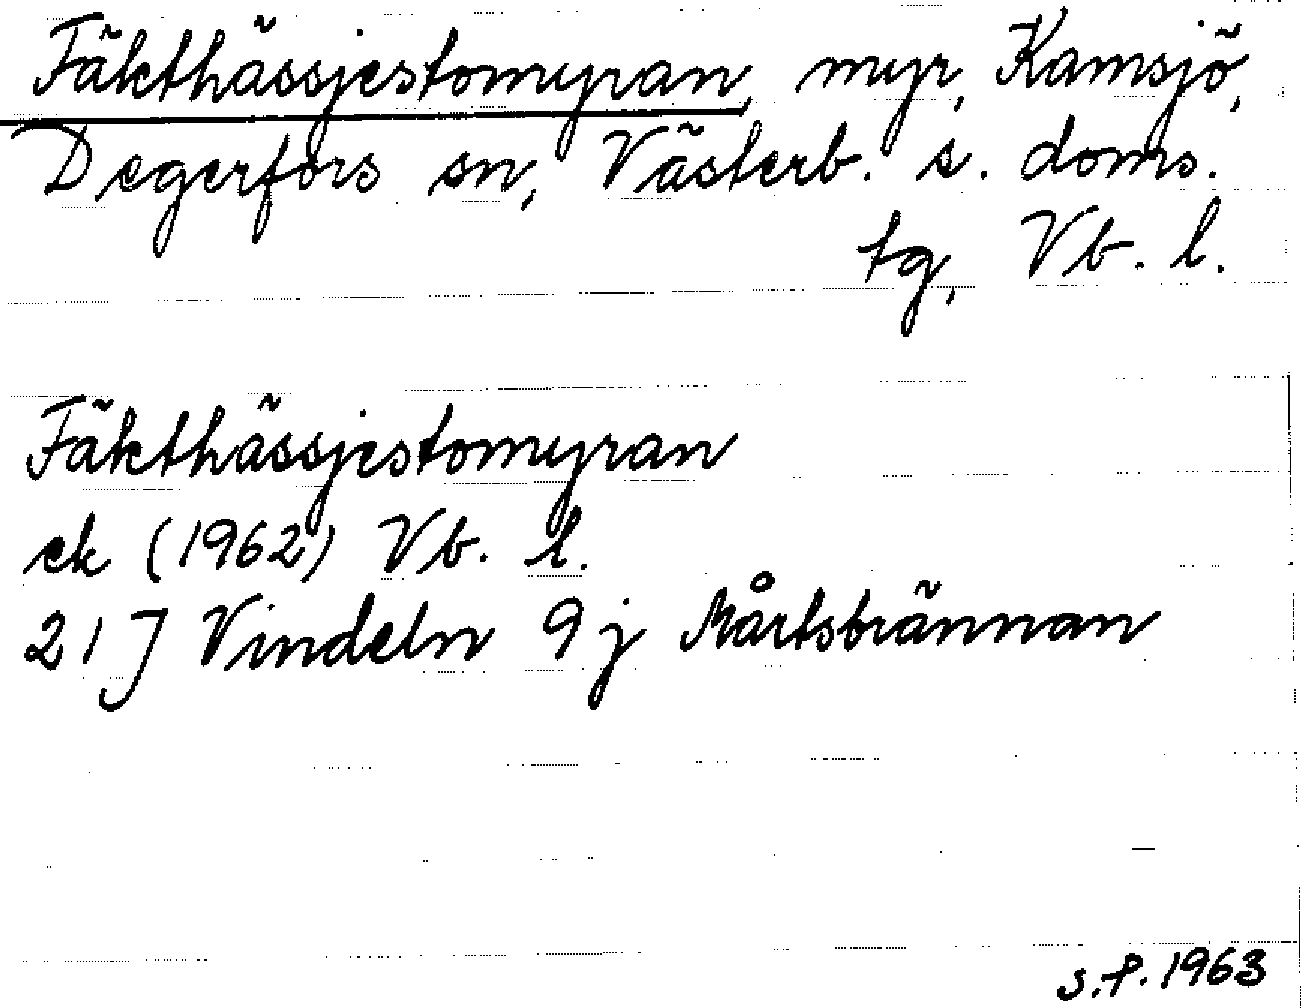 Fäkthässjestomyran, myr, Kamsjö,
Degerfors sn, Västerb. s. doms.
tg, Vb. l.
Fäkthässjestomyran
ek (1962) Vb. l.
21 J Vindeln 9 j Mårtsbrännan
s.f. 1963